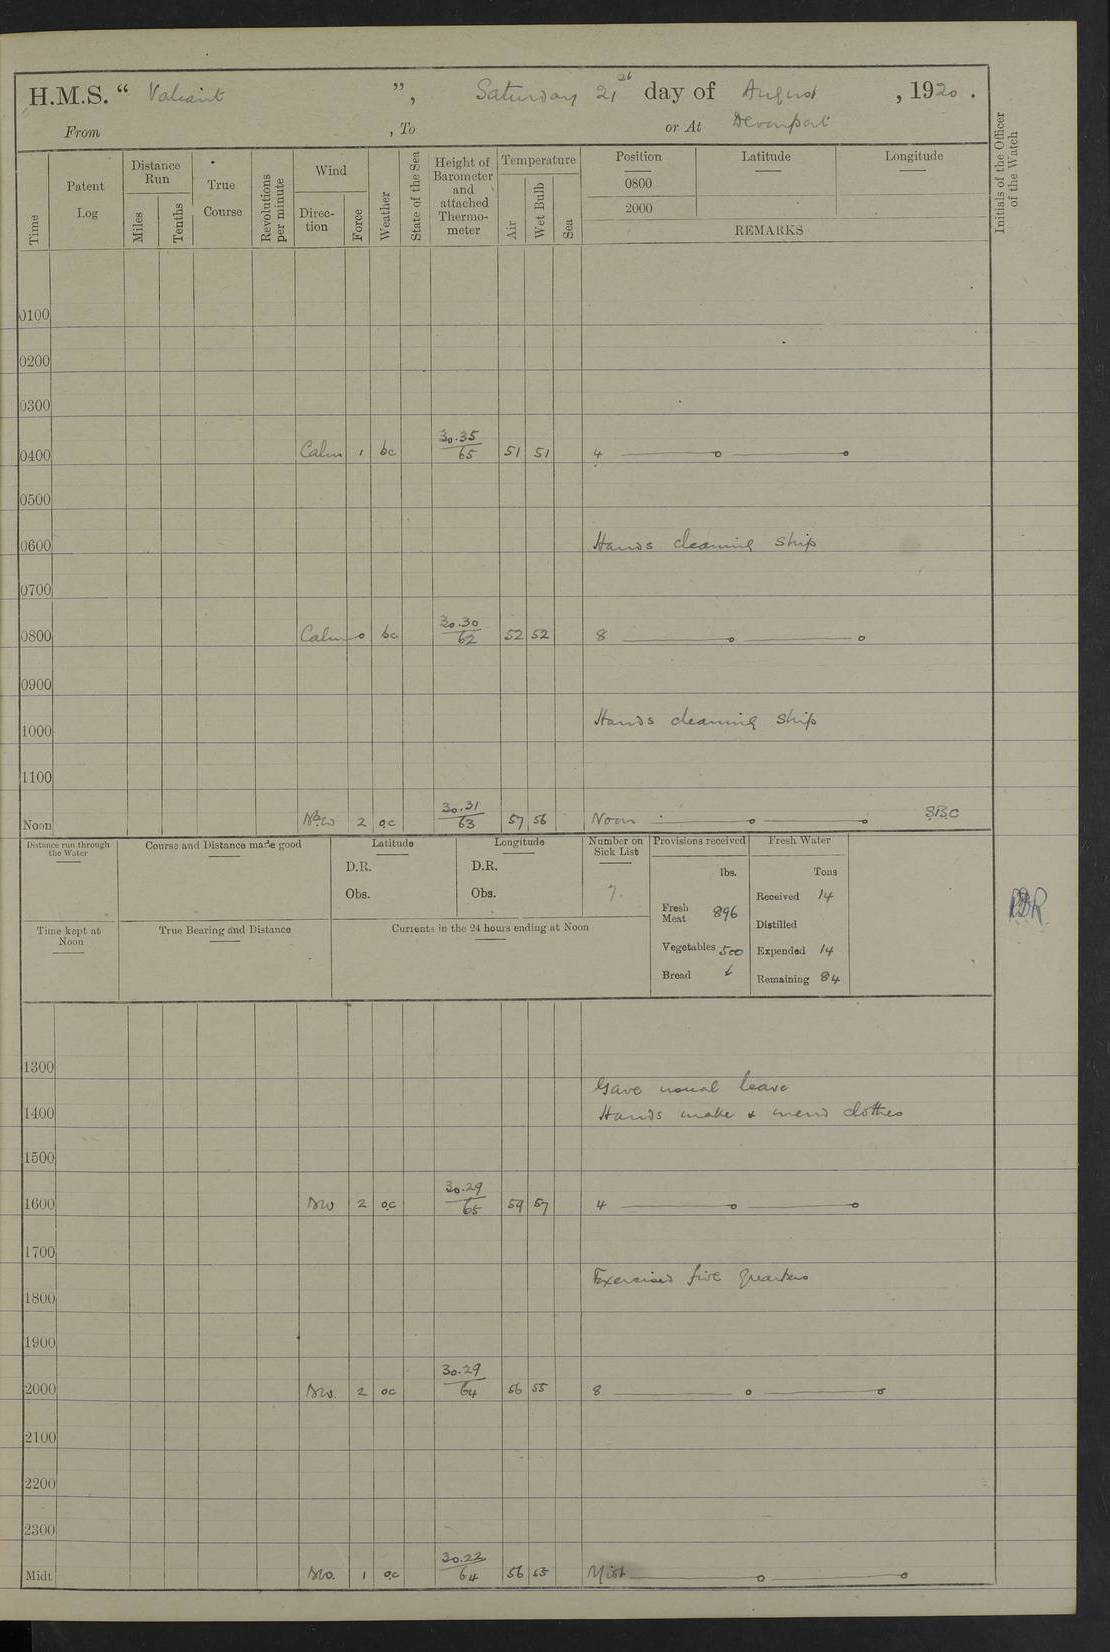 H.M.S. “ Valiant ”, Saturday 21st day of August , 1920 .
From , To or At Devonport
Time
Patent Log
Distance Run
Miles
Tenths
True Course
Revolutions per minute
Wind
Direction
Force
Weather
State of the Sea
Height of Barometer and attached Thermometer
Temperature
Air
Wet Bulb
Sea
Position Latitude Longitude
0800
2000
REMARKS
Initials of the Officer of the Watch
0100
0200
0300
0400 Calm 1 bc 30.35/65 51 51 4
0500
0600 Hands cleaning ship
0700
0800 Calm 0 bc 30.30/62 52 52 8
0900
1000 Hands cleaning ship
1100
Noon 2 oc 30.31/63 57 56 Noon
Distance run through the Water
Course and Distance made good
Latitude
D.R.
Obs.
Longitude
D.R.
Obs.
Number on Sick List
7.
Provisions received
lbs.
Fresh Meat 896
Vegetables 500
Bread
Fresh Water
Tons
Received 14
Distilled
Expended 14
Remaining 84
Time kept at Noon
True Bearing and Distance
Currents in the 24 hours ending at Noon
1300
Gave usual leave
1400 Hands make & mend clothes
1500
1600 2 oc 30.29/65 59 57 4
1700
Exercised fire quarters
1800
1900
2000 2 oc 30.29/64 56 55 8
2100
2200
2300
Midt 1 oc 30.22/64 56 55 Midt